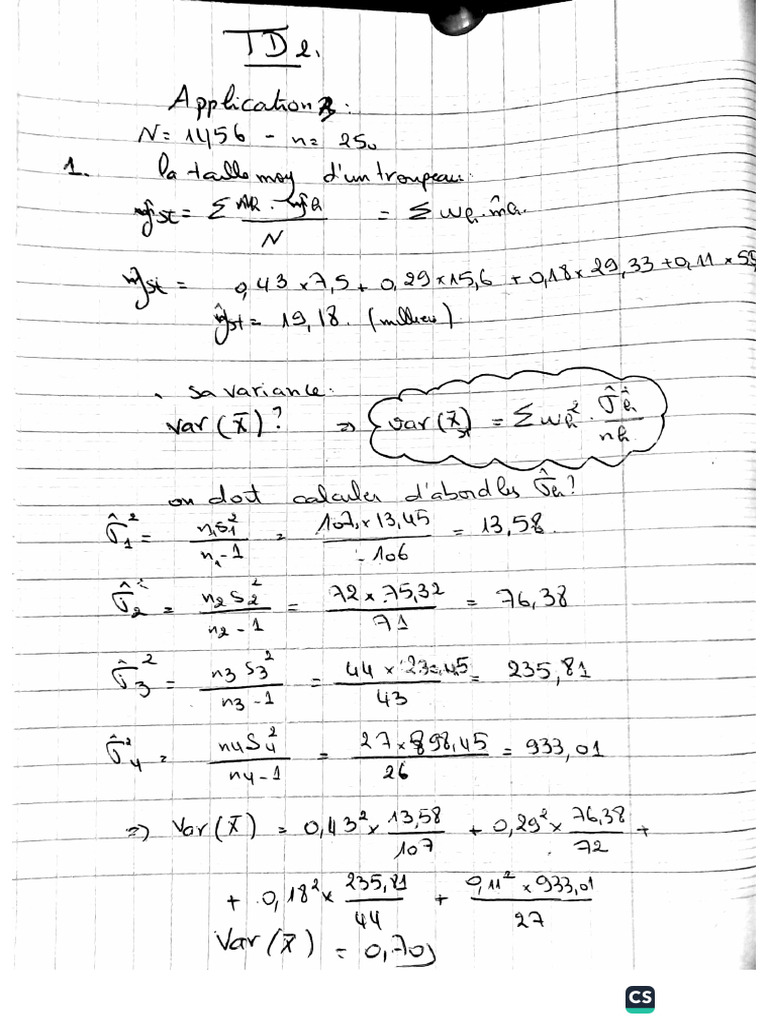 TD 2.
Application 3:
N = 1456 - n = 250
1. la taille moy d'un troupeau:
ŷst = Σ Nh . ŷh / N = Σ wh . m̂h.
ŷst = 0,43 × 7,5 + 0,29 × 15,6 + 0,18 × 29,33 + 0,11 × 55
ŷst = 19,18. (milliers)
. sa variance:
var (x̄)? ⇒ var (x̄st) = Σ wh² . σ̂²h / nh
on doit calculer d'abord les σ̂h?
σ̂1² = n1s1² / n1-1 = 107 × 13,45 / 106 = 13,58.
σ̂2² = n2 s2² / n2-1 = 72 × 75,32 / 71 = 76,38
σ̂3² = n3 s3² / n3-1 = 44 × 230,45 / 43 = 235,81
σ̂4² = n4 S4² / n4-1 = 27 × 898,45 / 26 = 933,01
⇒ Var (x̄) = 0,43² × 13,58 / 107 + 0,29² × 76,38 / 72 +
+ 0,18² × 235,81 / 44 + 0,11² × 933,01 / 27
Var (x̄) = 0,709
CS